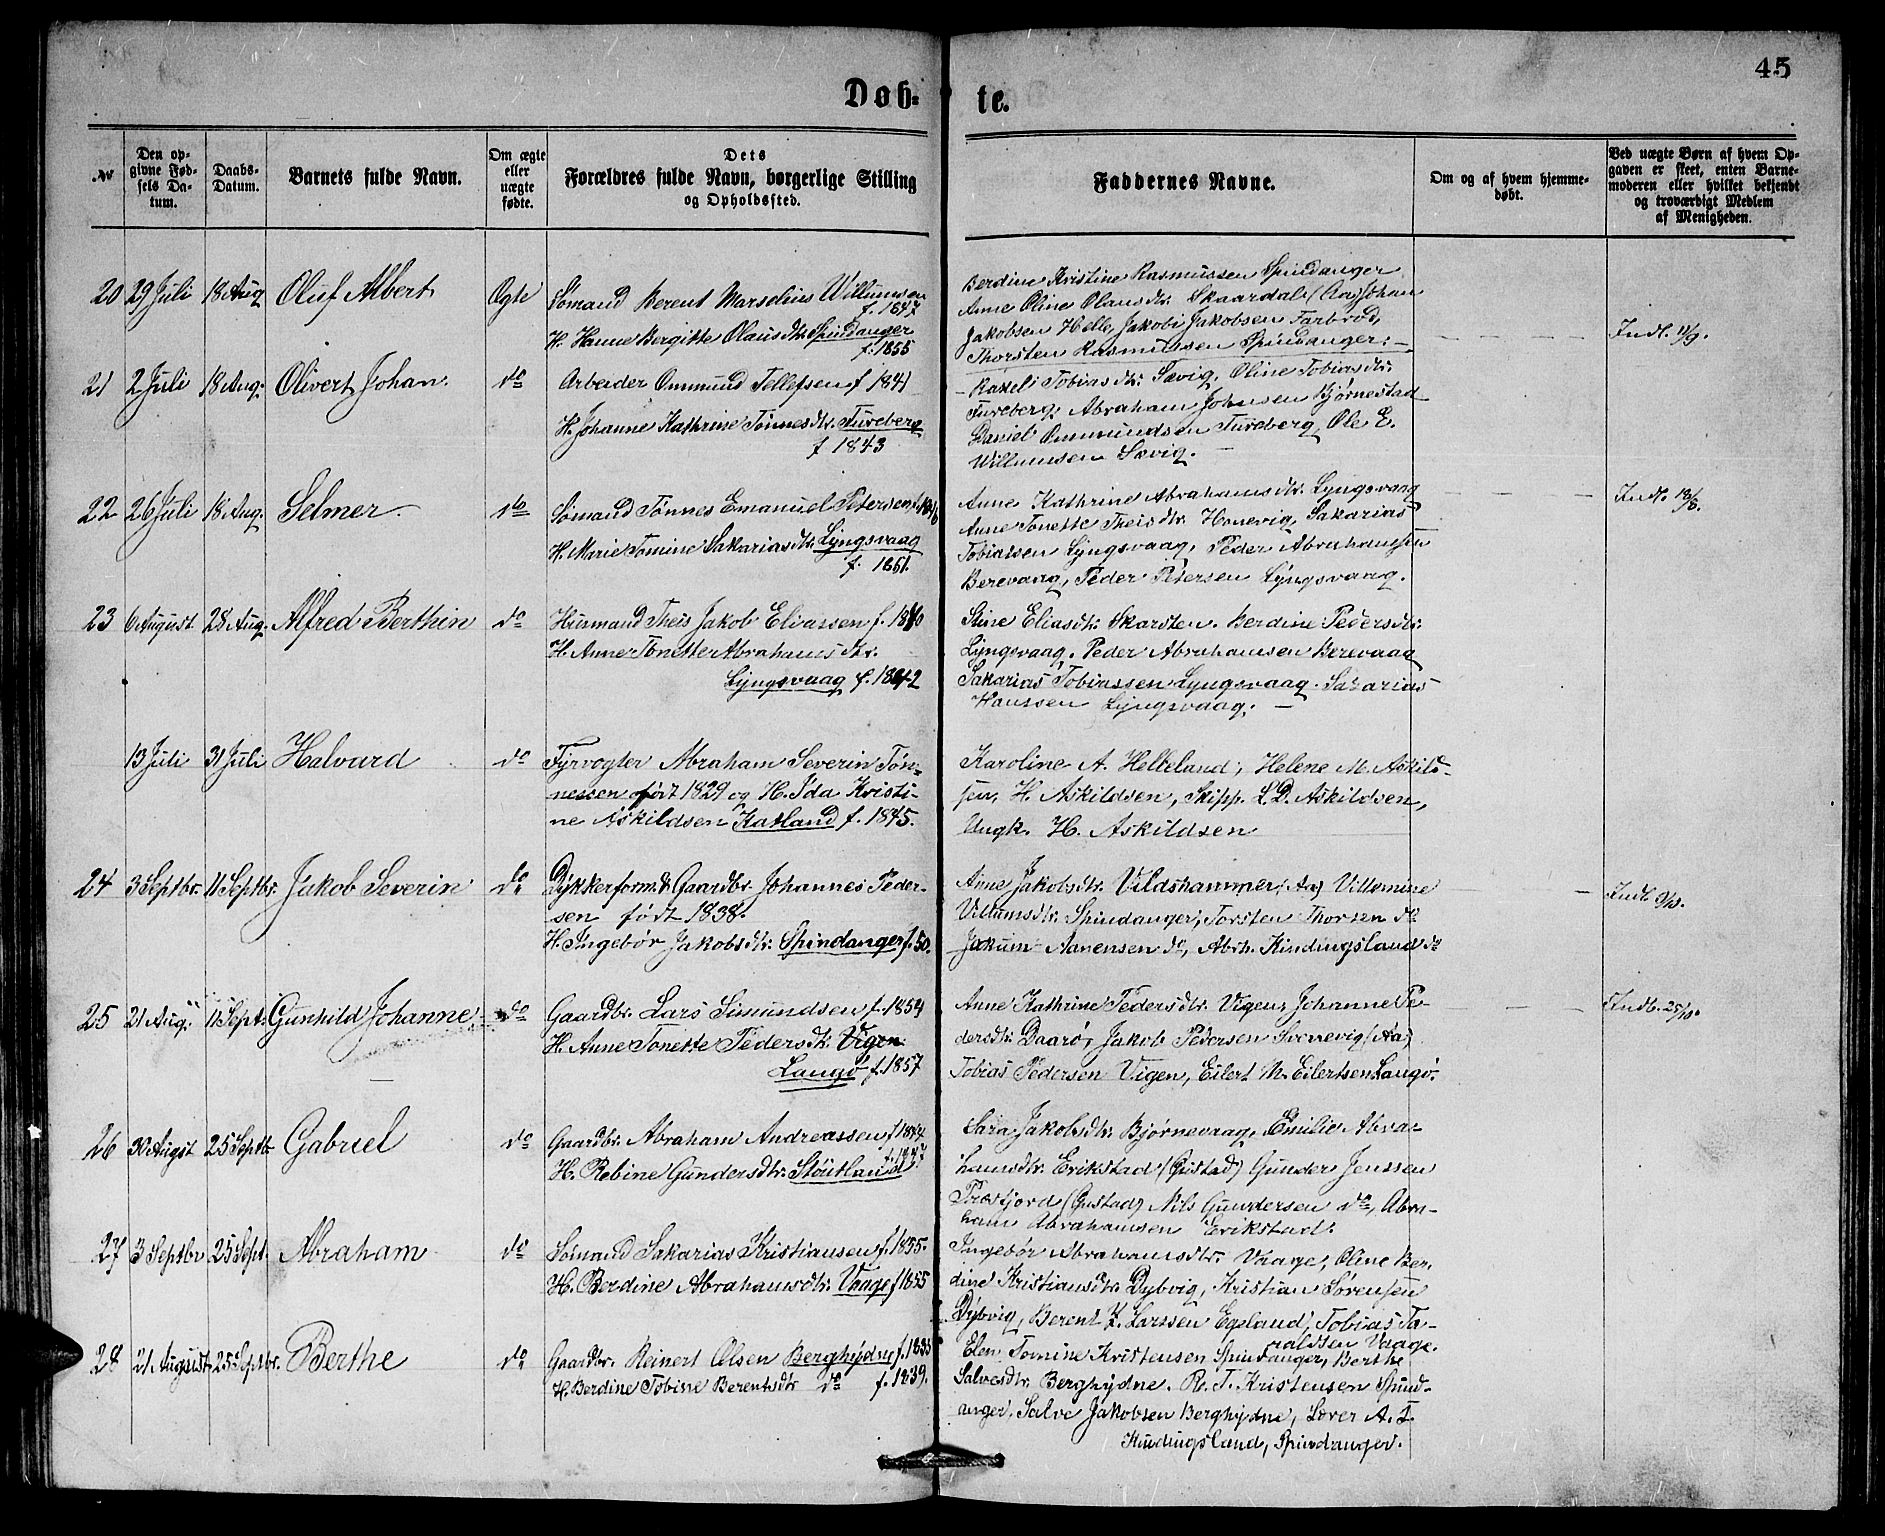 45
Døb-
te.
№
Den op-
givne Fød-
sels Da-
tum.
Daabs-
Datum.
Barnets fulde Navn.
Om ægte
eller
uægte
fødte.
Dets
Forældres fulde Navn, borgerlige Stilling
og Opholdssted.
Faddernes Navne.
Om og af hvem hjemme-
døbt.
Ved uægte Børn af hvem Op-
gaven er skeet, enten Barne-
moderen eller hvilket bekjendt
og troværdigt Medlem
af Menigheden.
20 29 Juli 18 Aug Oluf Albert Ægte
Sømand Berent Marselius Willumsen
f. 1847
H. Hanne Bergitte Olausdtr. Spindanger
f. 1855
Berdine Kristine Rasmussen Spindanger
Anne Oline Olausdtr. Skaardal (Aa) Johan
Jakobsen Helle, Jakob Jakobsen Farbrod,
Thorsten Rasmussen Spindanger. —
Indb. 11/9.
21 2 Juli 18 Aug. Olivert Johan. do
Arbeider Ommund Tellefsen f 1841
H. Johanne Kathrine Tønnesdtr. Tureberg
f 1843
Rakeli Tobiasdtr. Sævig, Oline Tobiasdtr.
Tureberg, Abraham Johnsen Bjørnestad
Daniel Ommundsen Tureberg, Ole E.
Willumsen Sævig. —
22 26 Juli 18 Aug. Selmer do
Sømand Tønnes Emanuel Petersen
H. Marie Tomine Sakariasdtr. Lyngsvaag
f. 1851.
Anne Kathrine Abrahamsdtr. Lyngsvaag
Anne Tonette Theisdtr. Honevig, Sakarias
Tobiassen Lyngsvaag, Peder Abrahamsen
Berevaag, Peder Petersen Lyngsvaag.
Indb. 18/8.
23 6 August 28 Aug. Alfred Berthin do
Husmand Theis Jakob Eliassen f. 1840
H. Anne Tonette Abrahamsdtr.
Lyngsvaag f. 1842
Stine Eliasdtr. Skarsten. Berdine Pedersdtr.
Lyngsvaag. Peder Abrahamsen Berevaag
Sakarias Tobiassen Lyngsvaag. Sakarias
Hanssen Lyngsvaag. —
13 Juli 31 Juli Halvard do
Fyrvogter Abraham Severin Tøn-
nessen født 1829 og H. Ida Kristi-
ne Askildsen Katland f. 1845.
Karoline A. Helleland, Helene M. Askild-
sen, H. Askildsen, Skipp. L. D. Askildsen,
Ungk. H. Askildsen
24 3 Septbr. 11 Septbr. Jakob Severin do
Dykkerform. & Gaardbr. Johannes Peder-
sen født 1838.
H. Ingebør Jakobsdtr. Spindanger f. 50.
Anne Jakobsdtr. Vildshammer (Aa) Villumine
Villumsdtr. Spindanger, Torsten Thorsen do
Jakum Aanensen do, Abrh. Kindingsland do
Indb. 9/10.
25 21 Aug. 11 Sept. Gunhild Johanne do
Gaardbr. Lars Simundsen f. 1854
H. Anne Tonette Pedersdtr. Vigen
Langø f. 1857
Anne Kathrine Pedersdtr. Vigen, Johanne Pe-
dersdtr. Daarø, Jakob Pedersen Svenevig (Aa)
Tobias Pedersen Vigen, Eilert M. Eilertsen Langø.
Indb. 25/10.
26 30 Augst 25 Septb Gabriel do
Gaardbr. Abraham Andreassen f 1844
H. Robine Gundersdtr. Støutland
Sara Jakobsdtr. Bjørnevaag, Emilie Abra-
hamsdtr. Erikstad (Gustad) Gunder Jenssen
Træfjord (Gustad) Nils Gundersen do, Abra-
ham Abrahamsen Erikstad.
27 3 Septbr 25 Sept. Abraham do
Sømand Sakarias Kristiansen f. 1855.
H. Berdine Abrahamsdtr. Vaage f 1855
Ingebør Abrahamsdtr. Vaage, Oline Ber-
dine Kristiansdtr. Dybvig, Kristian Sørensen
Dybvig, Berent Z. Larssen Egeland, Tobias Ta-
raldsen Vaage.
28 21 August 25 Septbr. Berthe do
Gaardbr. Reinert Olsen Berghydne f. 1835
H. Berdine Tobine Berentsdtr do f. 1839.
Elen Tomine Kristensen Spindanger, Berthe
Salvesdtr. Berghydne. R. T. Kristensen Spind-
anger, Salve Jakobsen Berghydne, Lærer A. T.
Kindingsland, Spindanger.